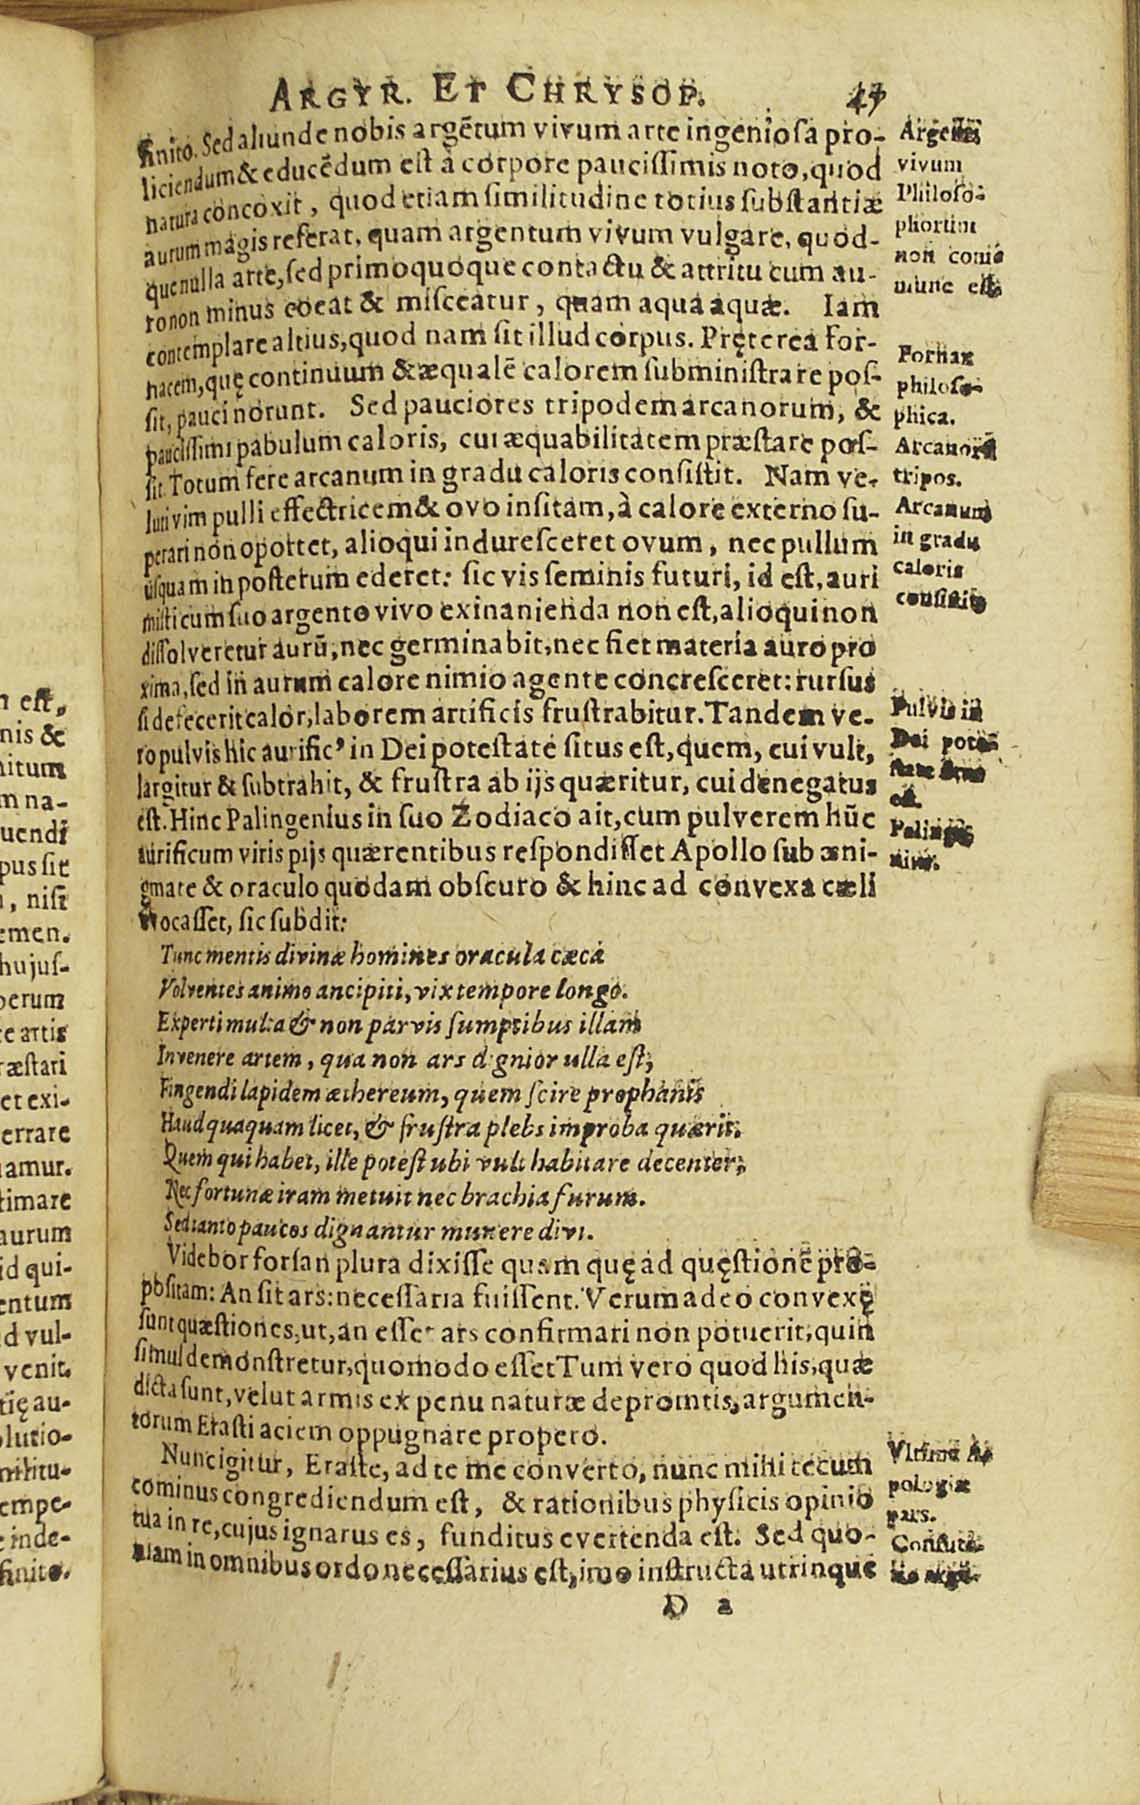 ARGYR. ET CHRYSOP. 47
finito. Sed aliunde nobis argẽtum vivum arte ingeniosa pro-
liciendum & educẽdum est à corpore paucissimis noto, quod
natura concoxit, quod etiam similitudine totius substantiæ
aurum magis referat, quam argentum vivum vulgare, quod-
que nulla arte, sed primo quoque contactu & attritu cum au-
ro non minus coeat & misceatur, quam aqua aquæ. Iam
contemplare altius, quod nam sit illud corpus. Pręterea For-
nacem, quę continuum & æqualẽ calorem subministrare pos-
sit, pauci norunt. Sed pauciores tripodem arcanorum, &
paucissimi pabulum caloris, cui æquabilitatem præstare pos-
sit. Totum fere arcanum in gradu caloris consistit. Nam ve-
luti vim pulli effectricem & ovo insitam, à calore externo su-
perari non oportet, alioqui induresceret ovum, nec pullum
usquam in posterum ederet: sic vis seminis futuri, id est, auri
misti cum suo argento vivo exinanienda non est, alioqui non
dissolveretur aurũ, nec germinabit, nec fiet materia auro pro
xima, sed in aurum calore nimio agente concresceret: rursus
si defecerit calor, laborem artificis frustrabitur. Tandem ve-
ro pulvis hic aurific' in Dei potestate situs est, quem, cui vult,
largitur & subtrahit, & frustra ab ijs quæritur, cui denegatus
est. Hinc Palingenius in suo Zodiaco ait, cum pulverem hũc
aurificum viris pijs quærentibus respondisset Apollo sub æni-
gmate & oraculo quodam obscuro & hinc ad convexa cæli
vocasset, sic subdit:
Tunc mentis divinæ homines oracula cæca
Volventes animo ancipiti, vix tempore longo.
Experti multa & non parvis sumptibus illam
Invenere artem, qua non ars dignior ulla est;
Fingendi lapidem æthereum, quem scire prophanis
Haud quaquam licet, & frustra plebs improba quærit.
Quem qui habet, ille potest ubi vult habitare decenter,
Nec fortunæ iram metuit nec brachia furum.
Sed tanto paucos dignantur munere divi.
Videbor forsan plura dixisse quam quę ad quęstionẽ pro-
positam: An sit ars: necessaria fuissent. Verum adeo convexę
sunt quæstiones, ut, an esset ars confirmari non potuerit, quin
simul demonstretur, quomodo esset Tum vero quod his, quæ
dicta sunt, velut armis ex penu naturæ depromtis, argumen-
torum Erasti aciem oppugnare propero.
Nunc igitur, Eraste, ad te me converto, nunc mihi tecum
cominus congrediendum est, & rationibus physicis opinio
tua in re, cujus ignarus es, funditus evertenda est. Sed quo-
niam in omnibus ordo necessarius est, imo instructa utrinque
D a
vivum
Philoso-
phorum
non com-
mune est
Fornax
philoso-
phica.
Arcanorũ
tripos.
Arcanum
in gradu
caloris
consistit
Pulvis in
Dei pote-
est.
Palinge-
nius.
Ultima A-
pologiæ
pars.
Confuta-
m est,
nis &
nitum
m na-
uendi
pus sit
, nisi
emen.
hujus-
perum
e artis
ræstari
et exi-
errare
amur.
timare
aurum
id qui-
entum
d vul-
venit.
tię au-
lutio-
nstitu-
empe-
e inde-
finito.